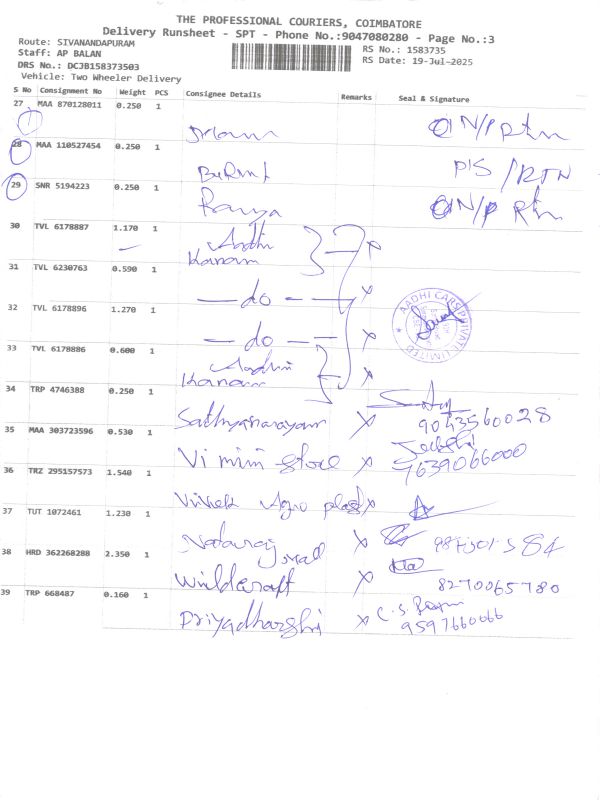 THE PROFESSIONAL COURIERS, COIMBATORE
Delivery Runsheet - SPT - Phone No.:9047080280 - Page No.:3
Route: SIVANANDAPURAM
Staff: AP BALAN
DRS No.: DCJB158373503
Vehicle: Two Wheeler Delivery
RS No.: 1583735
RS Date: 19-Jul-2025
S No Consignment No Weight PCS Consignee Details Remarks Seal & Signature
27 MAA 870128011 0.250 1
28 MAA 110527454 0.250 1
P/S / RTN
29 SNR 5194223 0.250 1
Ramya
30 TVL 6178887 1.170 1
Aadhi
Kanam
31 TVL 6230763 0.590 1
— do —
32 TVL 6178896 1.270 1
— do —
AADHI CARS PRIVATE LIMITED
33 TVL 6178886 0.600 1
Aadhi
Kanam
34 TRP 4746388 0.250 1
Sathyanarayan x
9043560028
35 MAA 303723596 0.530 1
Vi mini store x
9639066000
36 TRZ 295157573 1.540 1
Vivek Agro plast x
37 TUT 1072461 1.230 1
Nataraj x
38 HRD 362268288 2.350 1
Wildcraft x 8270065780
39 TRP 668487 0.160 1
Priyadharshi x
9597660066